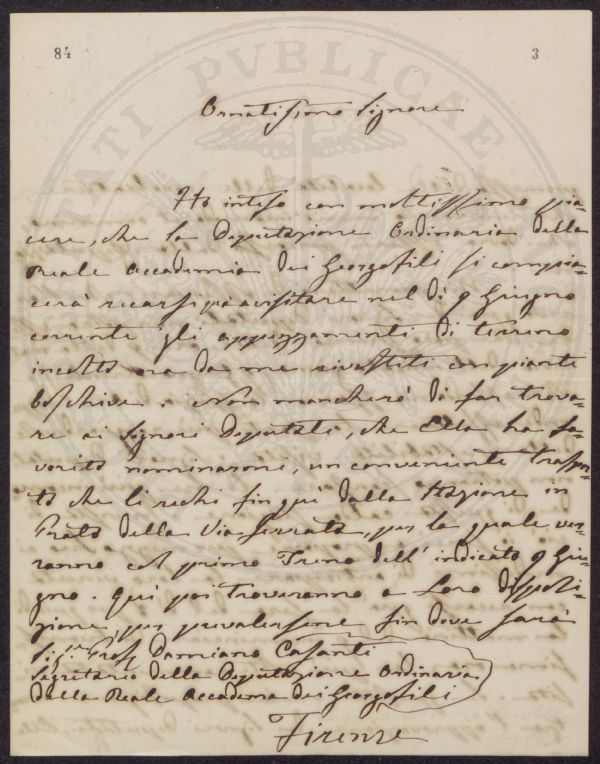 84 3
Ornatissimo Signore
Ho inteso con moltissimo pia-
cere, che la Deputazione Ordinaria della
Reale Accademia dei Georgofili si compia-
cerà recarsi a visitare nel dì 9 Giugno
corrente gli appezzamenti di terreno
incolto ora da me rivestiti con piante
boschive. Non mancherò di far trova-
re ai Signori Deputati, che Ella ha fa-
vorito nominarmi, un conveniente traspor-
to che li rechi fin quì dalla Stazione in
Prato della Via ferrata, per la quale ver-
ranno col primo Treno dell' indicato 9 Giu-
gno. Quì poi troveranno a Loro disposi-
zione, per prevalersene fin dove sarà
Sig.r Prof. Damiano Casanti
Segretario della Deputazione Ordinaria
della Reale Accademia dei Georgofili
Firenze
PUBLICAE